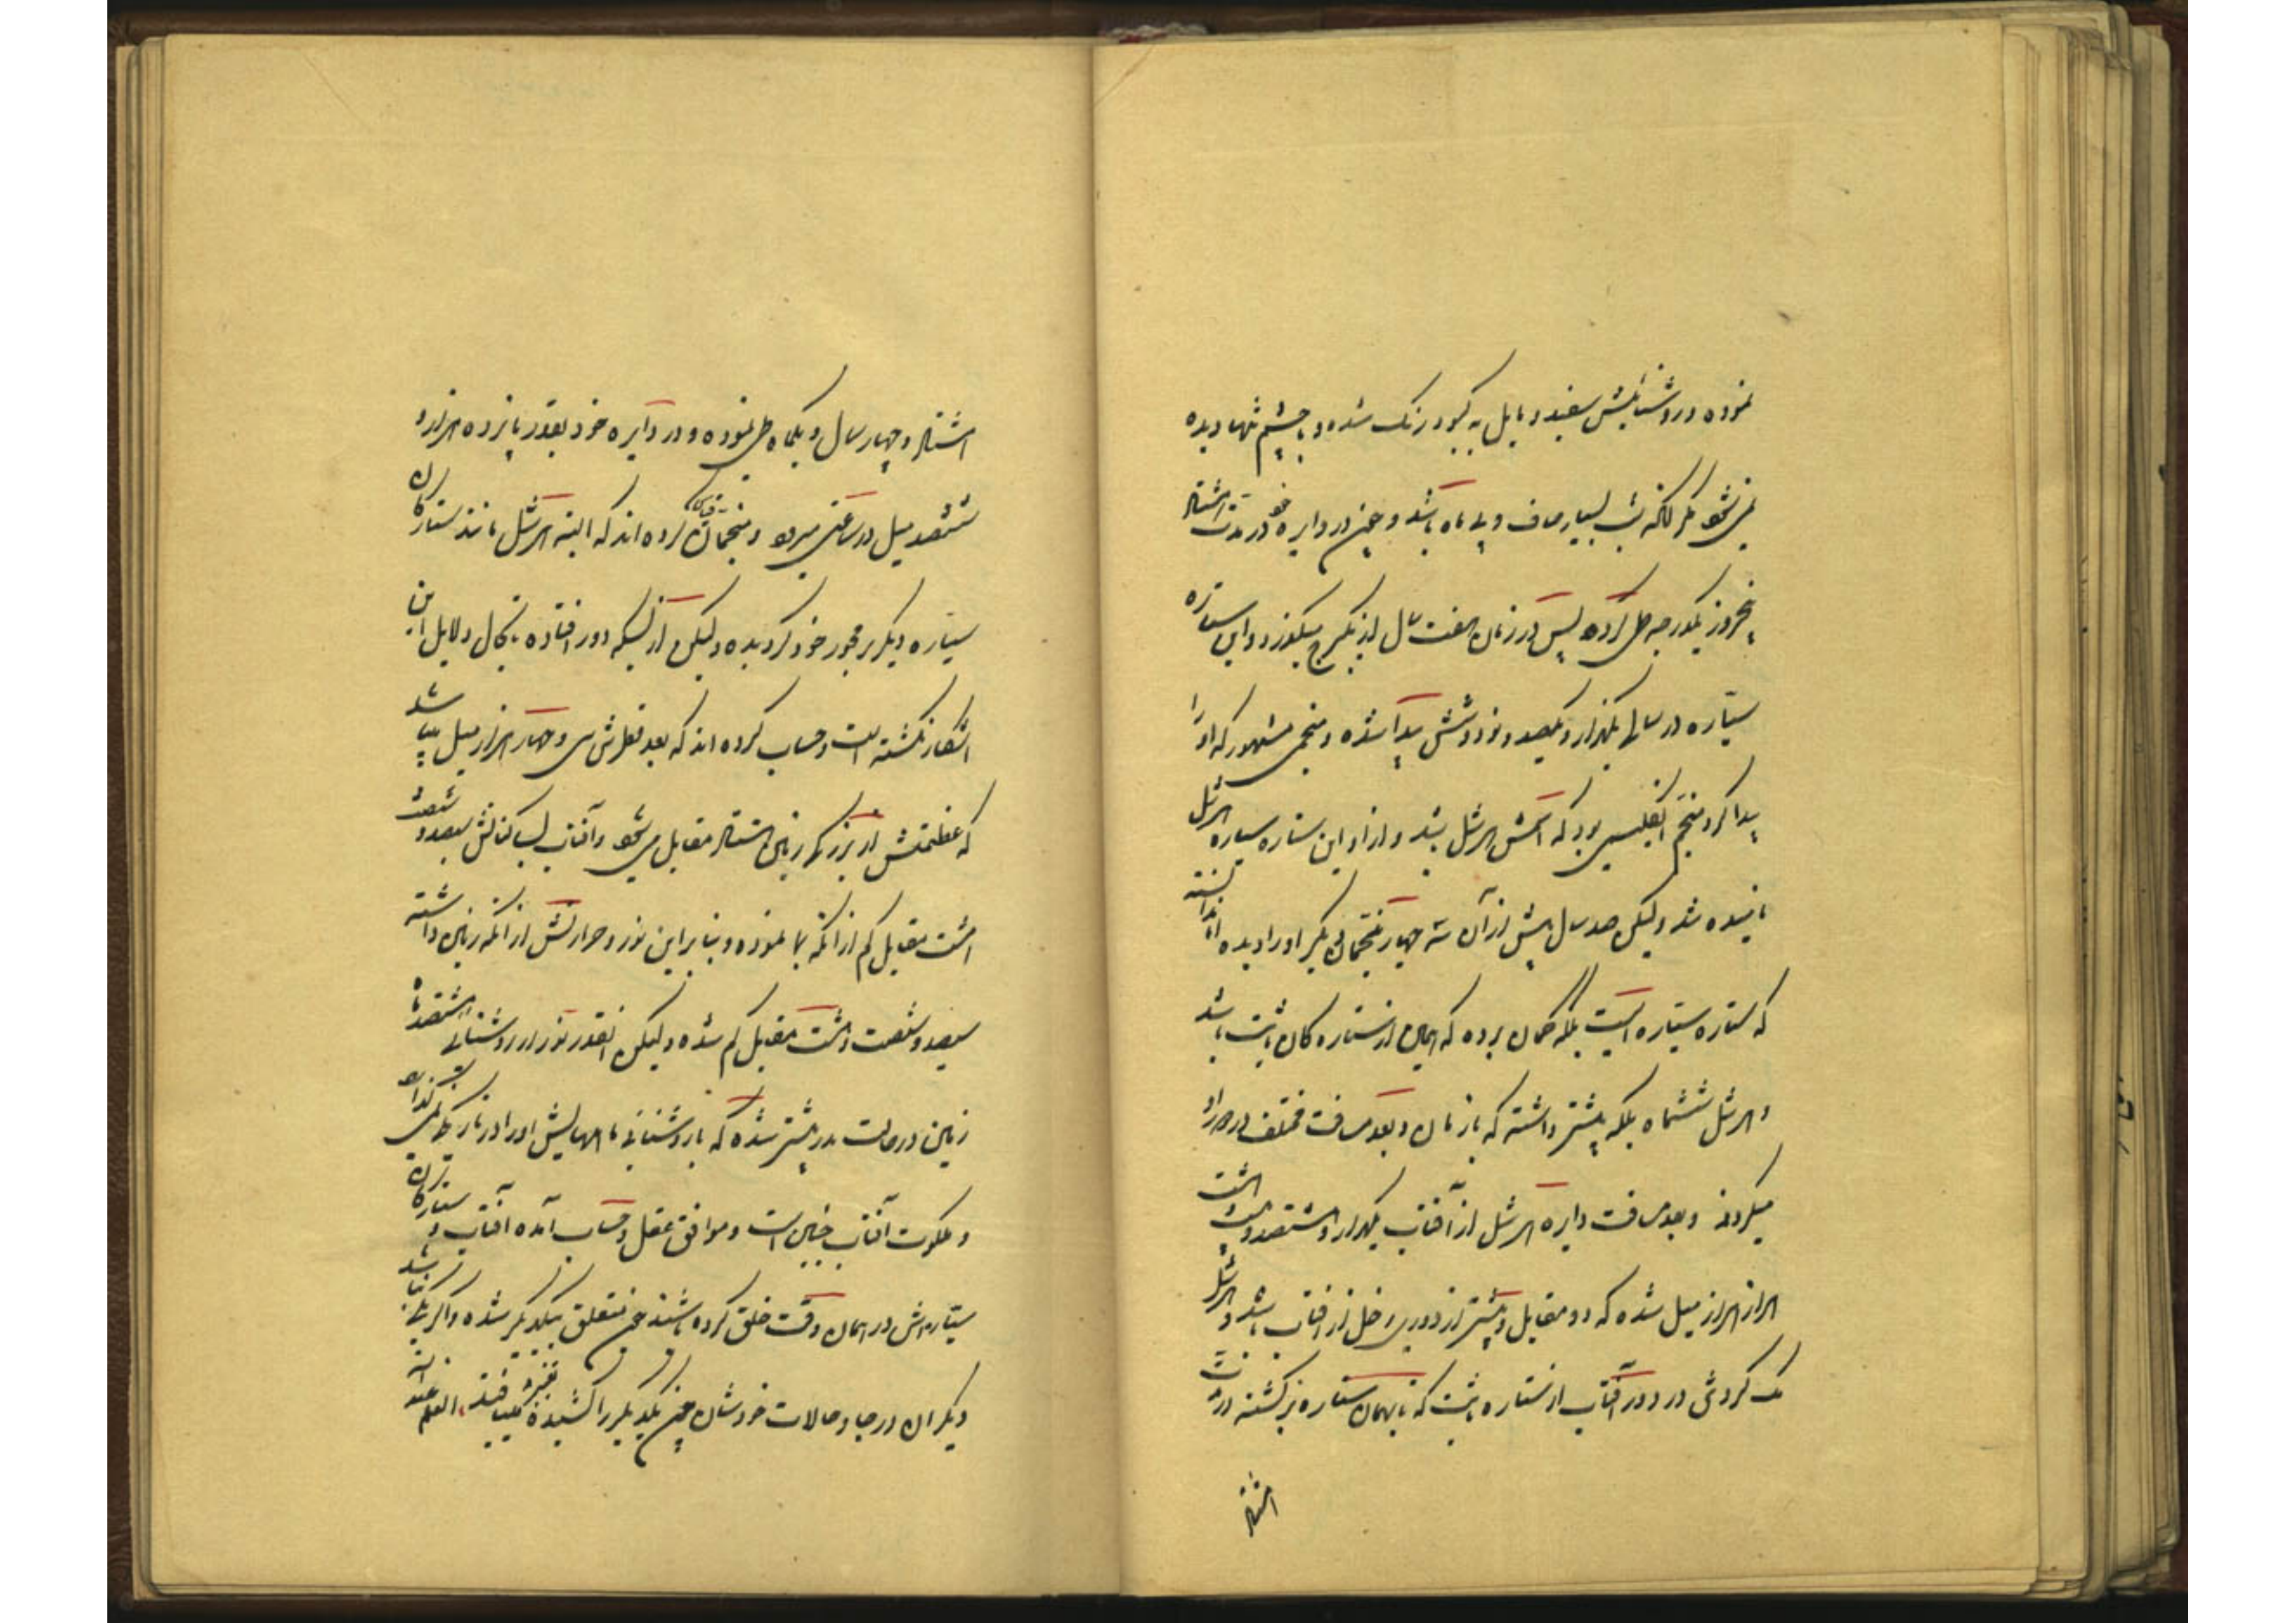 نموده و روشنائیش سفید و مایل به کبود رنک شده و با چشم تنها دیده
نمیشود مکر آنکه شب بسیار صاف و بی ماه باشد و چون در دایره خود در مدت هشتاد
پنجروز یکدرجه طی کرده پس در زمان هفت سال از یکبرج میکذرد و این ستاره
سیّاره در سال یکهزار و یکصد و نود و شش پیدا شده و منجمی مشهور که او را
پیدا کرد منجم انکلیسی بود که اسمش هرشل بُد و از او این ستاره سیاره هرشل
نامیده شد ولیکن صد سال پیش از آن سه چهار منجمان دیکر او را دیده ندانسته اند
که ستاره سیّاره است بلکه کمان برده که همان از ستاره کان ثابت باشد
و هرشل ششماه بلکه بیشتر داشته که با زمان و بعد مسافت مختلف در مدار او
میکردند و بعد مسافت دایره هرشل از آفتاب یکهزار و هشتصد و بیست هشت
هزار هزار میل شده که دو مقابل و بیشتر از دوری زحل از آفتاب باشد و هرشل
یک کردش در دور آفتاب از ستاره ثابت که تا بهمان ستاره برکشته در مدت
هشتاد
هشتاد و چهار سال و یکماه طی نموده و در دایره خود بقدر پانزده هزار و
ششصد میل در ساعتی میرود و منجمان قیاس کرده اند که البته هرشل مانند ستارکان
سیّاره دیکر بر محور خود کردیده ولیکن از بسکه دور افتاده تا بحال دلایل این
آشکار نکشته است و حساب کرده اند که بعد قطرش سی و چهار هزار میل میباشد
که عظمتش از بزرکی زمین هشتاد مقابل میشود و آفتاب بساکنانش سیصد و شصت
هشت مقابل کم از آنکه بما نموده و بنابراین نور و حرارتش از آنکه زمین داشته
سیصد و شصت و هشت مقابل کم شده ولیکن آنقدر نور از روشنائی هشتصد ماه
زمین در حالت بدر بیشتر شده که با روشنائی ماههایش او را در تاریکی نمیکذارد
و ملکوت آفتاب چنین است و موافق عقل و حساب آمده آفتاب و ستارکان
سیّاره اش در همان وقت خلق کرده باشند چون متعلق بیکدیکر شده و اکر یکی نباشد
دیکران در جا و حالات خودشان چون یکدیکر را کشیده تغییر مییافتند العلم عند الله